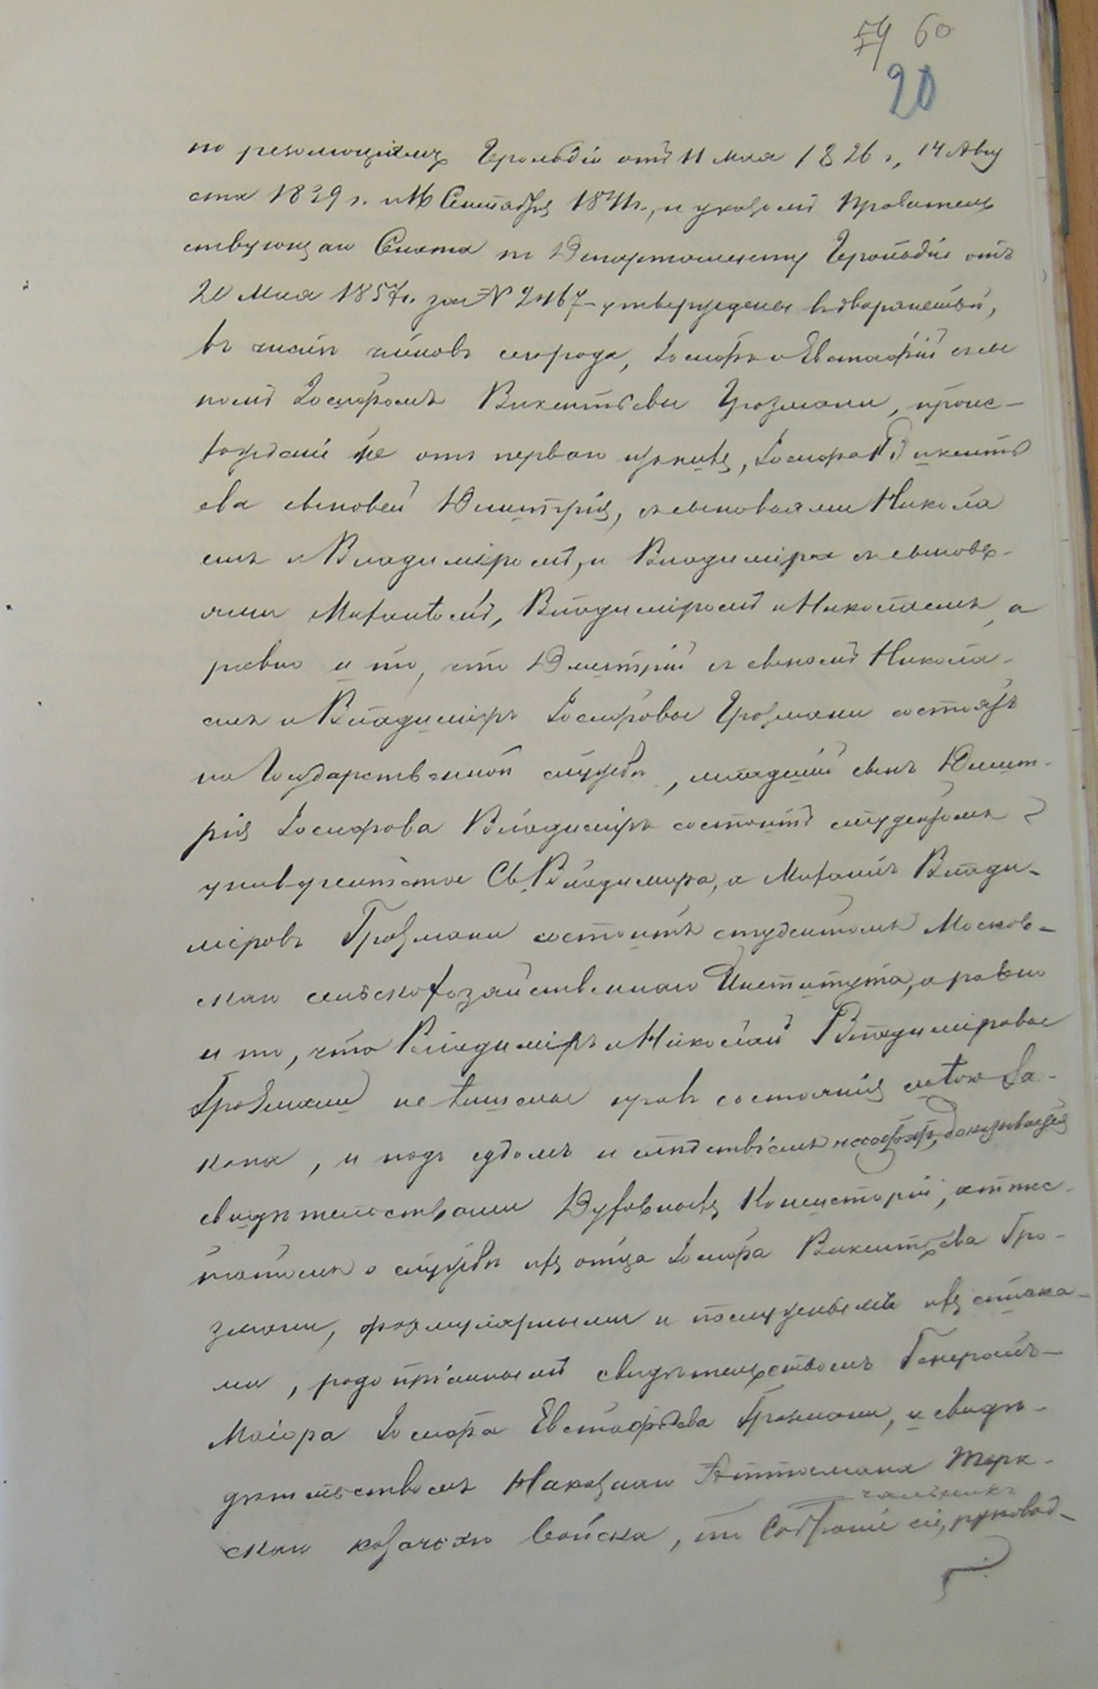 59 60
20
по резолюціямъ Герольдіи отъ 11 мая 1826 г., 14 Авгу
ста 1839 г. и 16 Сентября 1841 г., и указомъ Правитель
ствующаго Сената по Департаменту Герольдіи отъ
20 Мая 1857 г. за № 2467 утверждены въ дворянствѣ,
въ числѣ членовъ сего рода, Іосифъ и Евстафій съ сы
номъ Іосифомъ Викентьевы Грозмани, проис-
хожденіе же отъ перваго изъ нихъ, Іосифа Викентье
ва сыновей Димитрія, съ сыновьями Никола
емъ и Владиміромъ, и Владиміра съ сыновь-
ями Михаиломъ, Владиміромъ и Николаемъ, а
равно и то, что Дмитрій съ сыномъ Никола-
емъ и Владиміръ Іосифовы Грозмани состоятъ
на Государственной службѣ, младшій сынъ Димит-
рія Іосифова Владиміръ состоитъ студентомъ
университета Св. Владимира, а Михаилъ Влади-
міровъ Грозмани состоитъ студентомъ Москов-
скаго сельскохозяйственнаго Института, а равно
и то, что Владиміръ и Николай Владиміровы
Грозмани не лишены правъ состоянія
и подъ судомъ и слѣдствіемъ доказывается
свидѣтельствами Духовныхъ Консисторій, аттес-
татомъ о службѣ ихъ отца Іосифа Викентьева Гро-
змани, формулярными и послужными ихъ списка-
ми, свидѣтельствомъ Генералъ-
Маіора Іосифа Евстафьева Грозмани, и свидѣ-
дѣтельствомъ Наказнаго Аттамана Терк-
скаго казачьяго Войска, то Собраніе сіе, руковод-